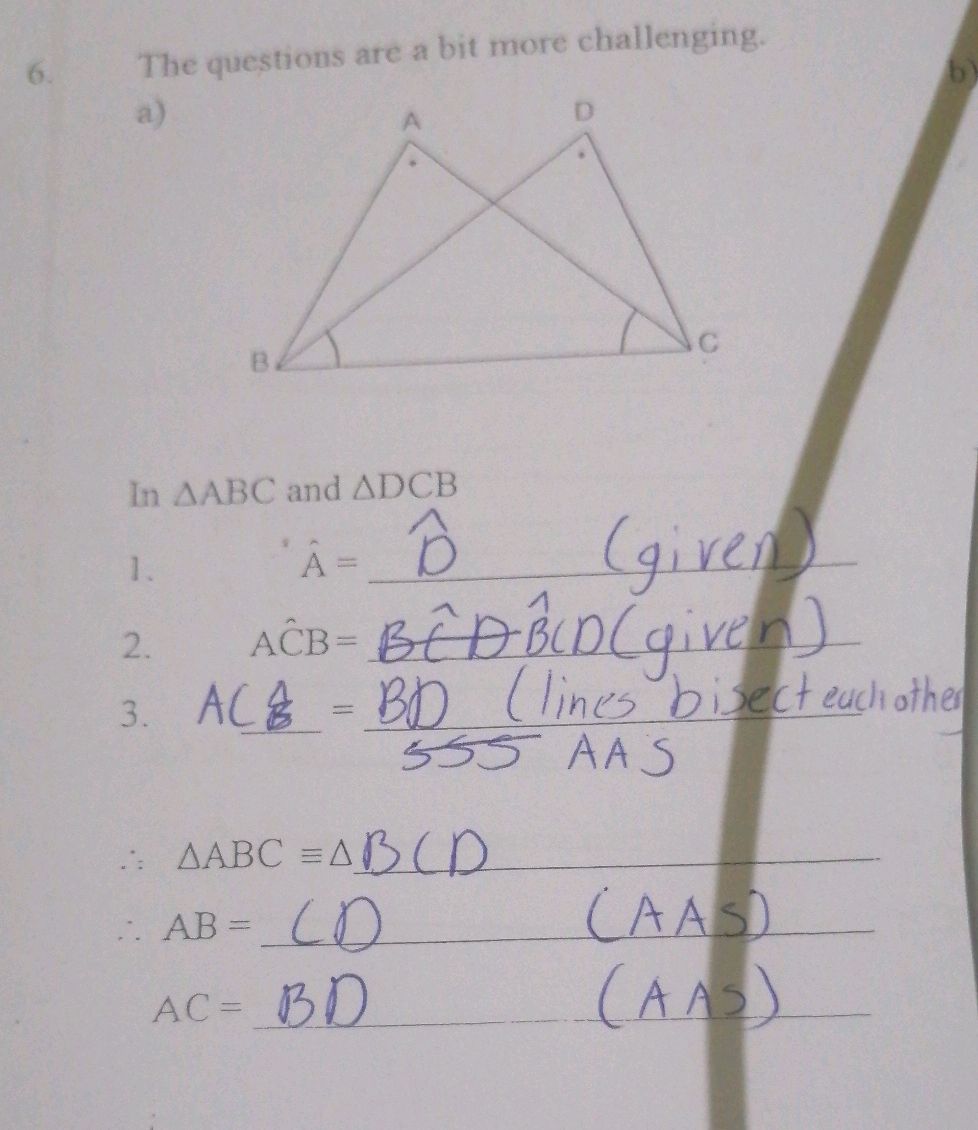 6. The questions are a bit more challenging.
b)
a)
A D
B C
In ΔABC and ΔDCB
1. Â = D̂ (given)
2. AĈB = BĈD B̂CD (given)
3. AC = BD (lines bisect each other
SSS AAS
∴ ΔABC ≡ Δ BCD
∴ AB = CD (AAS)
AC = BD (AAS)